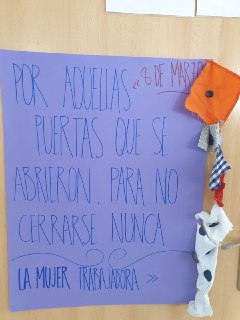 « 8 DE MARZO
POR AQUELLAS
PUERTAS QUE SE
ABRIERON, PARA NO
CERRARSE NUNCA
LA MUJER TRABAJADORA »